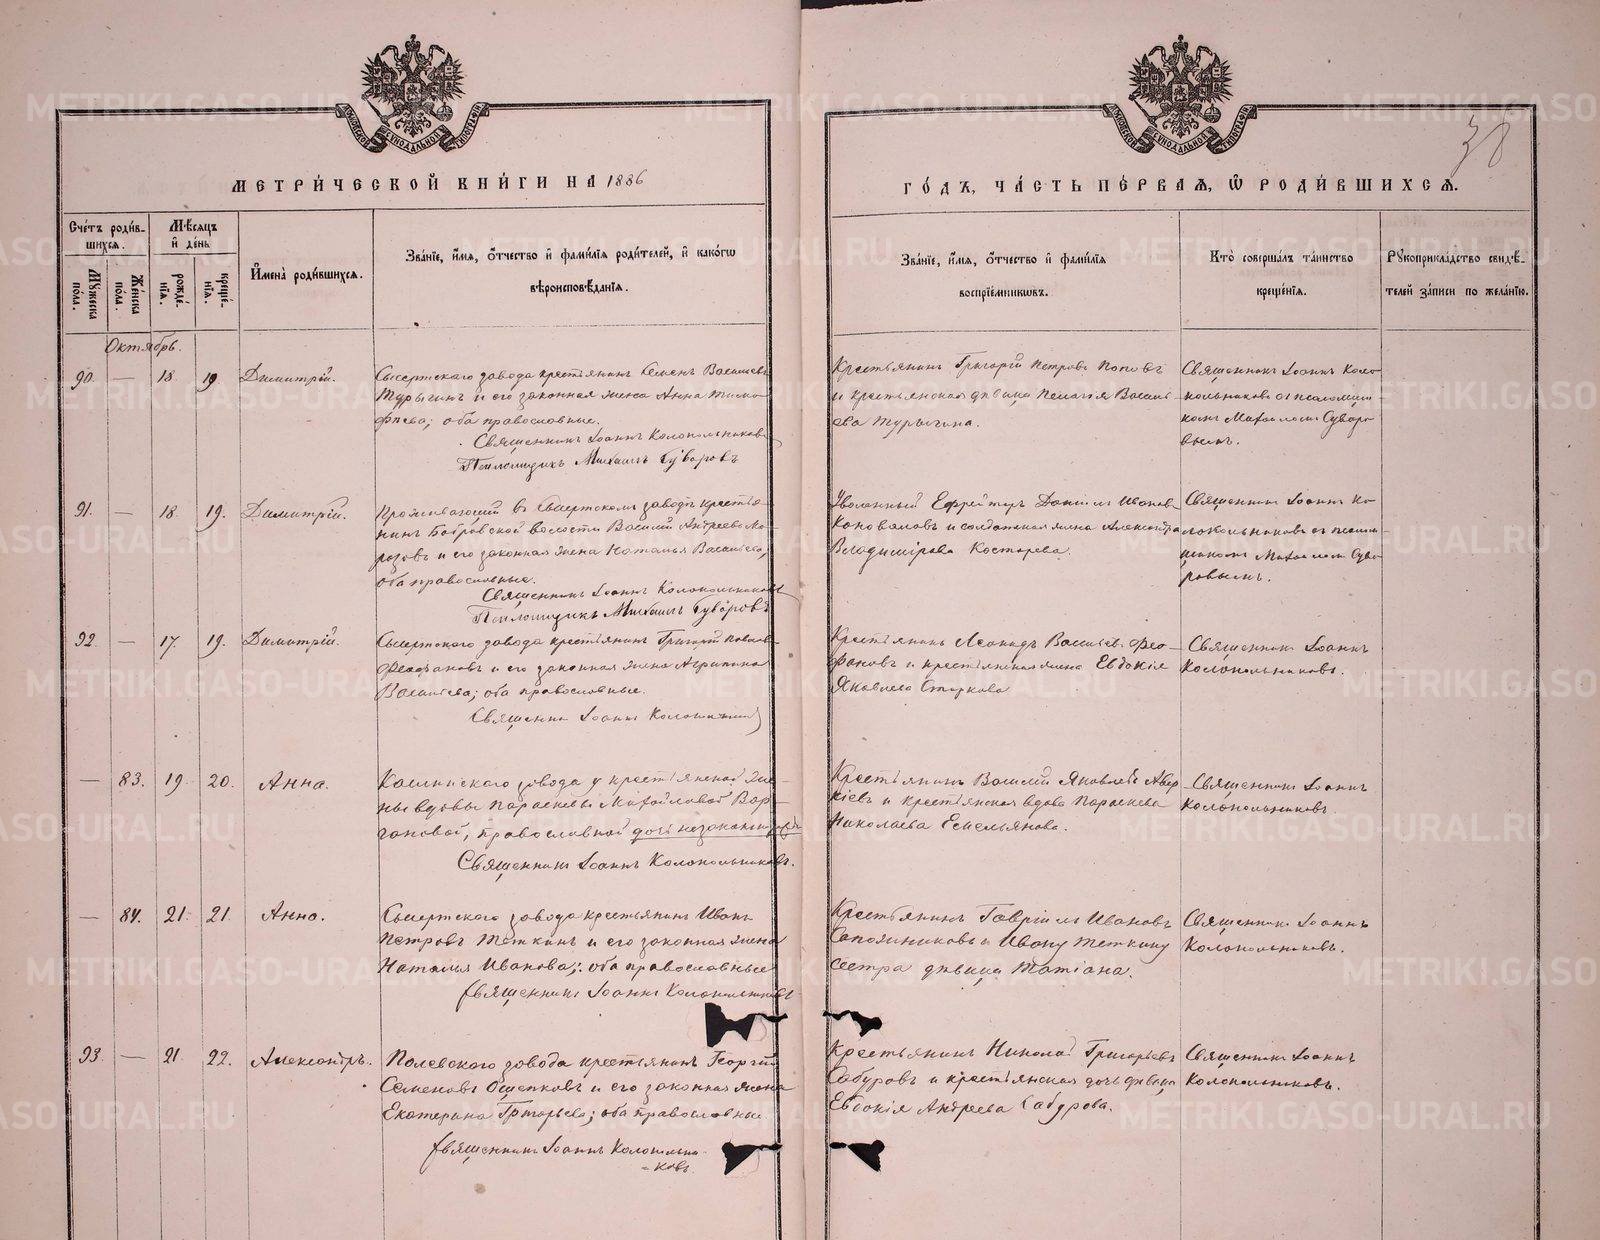 МЕТРИ́ЧЕСКОЙ КНИ́ГИ НА 1886
ГО́ДЪ, ЧА́СТЬ ПЕ́РВАЯ, Ѽ РОДИ́ВШИХСЯ.
38
Сче́тъ роди́в-
шихся.
Мѣ́сяцъ
и҆ де́нь
Мꙋ́жеска по́ла.
Же́нска по́ла.
рожде́-
нїѧ.
креще́-
нїѧ.
И҆мена̀ роди́вшихся.
Зва́нїе, и҆́мя, ѻ҆́тчество и҆ фами́лїя роди́телей, и҆ како́гѡ
вѣроисповѣ́данїя.
Зва́нїе, и҆́мя, ѻ҆́тчество и҆ фами́лїя
воспрїе́мникѡвъ.
Кто̀ соверша́лъ та́инство
креще́нїя.
Рꙋкоприкла́дство свидѣ́-
телей за́писи по жела́нїю.
Октябрь.
90. — 18. 19 Димитрій.
Сысертскаго завода крестьянинъ Семенъ Васильевъ
Турыгинъ и его законная жена Анна Тимо-
феева; оба православные.
Священникъ Іоаннъ Колокольниковъ
Псаломщикъ Михаилъ Суворовъ
Крестьянинъ Григорій Петровъ Поповъ
и крестьянская дѣвица Пелагія Василь-
ева Турыгина.
Священникъ Іоаннъ Коло-
кольниковъ съ псаломщи-
комъ Михаиломъ Суворо-
вымъ.
91. — 18. 19. Димитрій.
Проживающій въ Сысертскомъ заводѣ крестья-
нинъ Бобровской волости Василій Андреевъ Мо-
розовъ и его законная жена Наталья Васильева,
оба православные.
Священникъ Іоаннъ Колокольниковъ
Псаломщикъ Михаилъ Суворовъ
Уволенный Ефрейторъ Даніилъ Ивановъ
Коноваловъ и солдатская жена Александра
Владимірова Костарева.
Священникъ Іоаннъ Ко-
локольниковъ съ псалом-
щикомъ Михаиломъ Суво-
ровымъ.
92. — 17. 19. Димитрій.
Сысертскаго завода крестьянинъ Григорій Павловъ
Феофановъ и его законная жена Агрипина
Васильева; оба православные.
Священникъ Іоаннъ Колокольниковъ
Крестьянинъ Леонидъ Васильевъ Фео-
фановъ и крестьянская жена Евдокія
Яковлева Старкова
Священникъ Іоаннъ
Колокольниковъ.
— 83. 19. 20. Анна.
Каслинскаго завода у крестьянской же-
ны вдовы Параскевы Михайловой Вар-
гановой, православной дочь незаконнорожд.
Священникъ Іоаннъ Колокольниковъ.
Крестьянинъ Василій Яковлевъ Авер-
кіевъ и крестьянская вдова Параскева
Николаева Емельянова.
Священникъ Іоаннъ
Колокольниковъ.
— 84. 21. 21. Анна.
Сысертскаго завода крестьянинъ Иванъ
Петровъ Теткинъ и его законная жена
Наталия Иванова; оба православные
Священникъ Іоаннъ Колокольниковъ
Крестьянинъ Гавріилъ Ивановъ
Сапожниковъ и Ивану Теткину
сестра дѣвица Татіана.
Священникъ Іоаннъ
Колокольниковъ.
93. — 21. 22. Александръ.
Полевскаго завода крестьянинъ Георгій
Семеновъ Ощепковъ и его законная жена
Екатерина Григорьева; оба православные
Священникъ Іоаннъ Колокольни-
ковъ.
Крестьянинъ Николай Григорьевъ
Сабуровъ и крестьянская дочь дѣвица
Евдокія Андреева Сабурова.
Священникъ Іоаннъ
Колокольниковъ.
METRIKI.GASO-URAL.RU